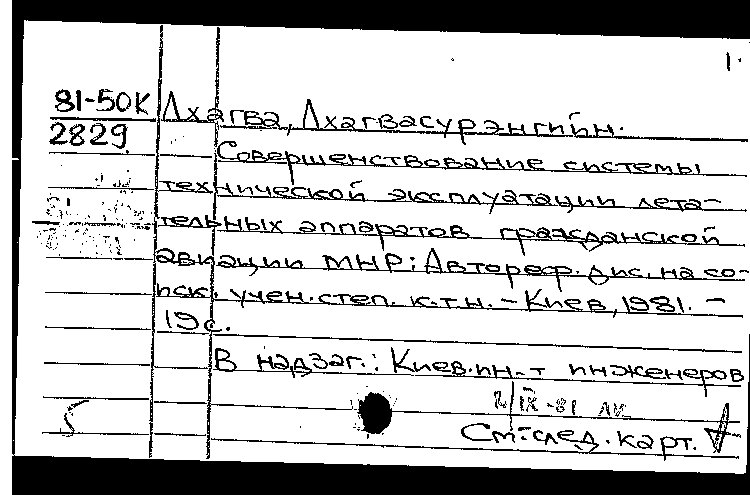 1.
81-50К
2829
Лхагва, Лхагвасурэнгийн.
Совершенствование системы
технической эксплуатации лета-
тельных аппаратов гражданской
авиации МНР: Автореф. дис. на со-
иск. учен. степ. к.т.н. - Киев, 1981. -
19с.
В надзаг.: Киев. ин-т инженеров
IX-81
См. след. карт.